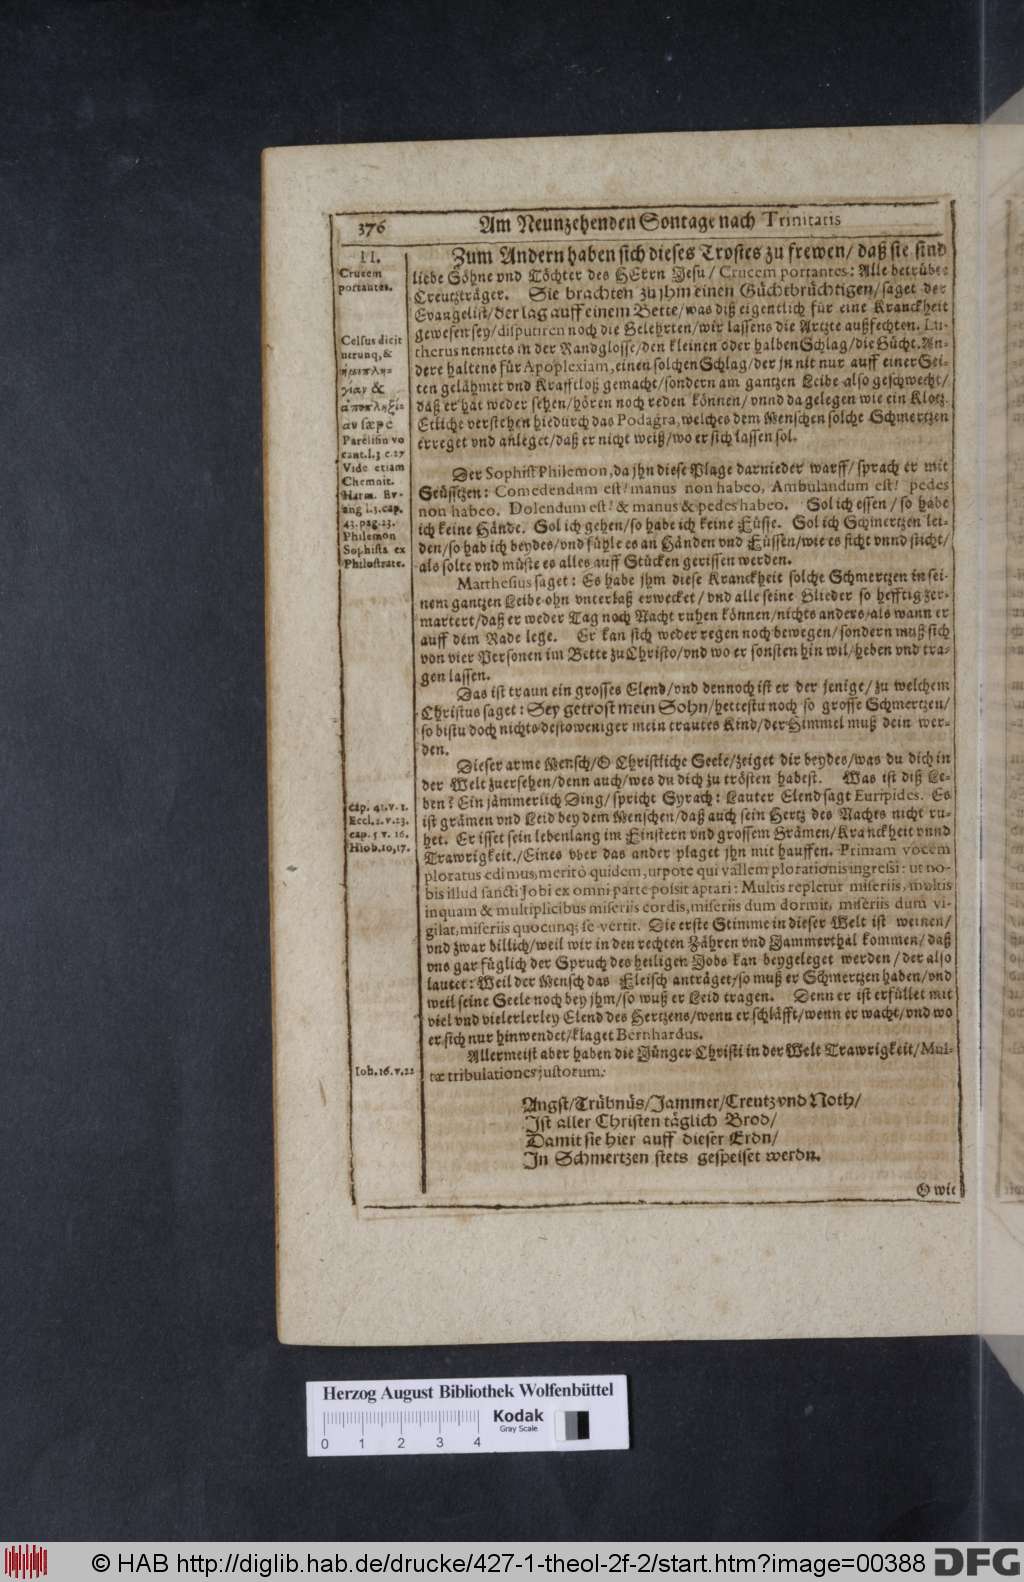 376
Am Neunzehenden Sontage nach Trinitatis
II.
Crucem
portantes.
Celsus dicit
utrunq, &
ἡμιπλη-
γίαν &
ἀποπληξί-
αν sæpe
cant. l.3 c.27
Vide etiam
Chemnit.
Harm. Ev-
ang l.3. cap.
43. pag. 23.
Philemon
Sophista ex
Philostrate.
cap. 41. v. 1.
Eccl. 2. v. 23.
cap. 5 v. 16.
Hiob. 10, 17.
Ioh. 16. v. 22
Zum Andern haben sich dieses Trostes zu frewen/ daß sie sind
liebe Söhne vnd Töchter des HErrn Jesu/ Crucem portantes: Alle betrübte
Creutzträger. Sie brachten zu jhm einen Güchtbrüchtigen/ saget der
Evangelist/ der lag auff einem Bette/ was diß eigentlich für eine Kranckheit
gewesen sey/ disputiren noch die Gelehrten/ wir lassens die Artzte außfechten. Lu-
therus nennets in der Randglosse/ den kleinen oder halben Schlag/ die Gücht. An-
dere haltens für Apoplexiam, einen solchen Schlag/ der jn nit nur auff einer Sei-
ten gelähmet vnd Krafftloß gemacht/ sondern am gantzen Leibe also geschwecht/
daß er hat weder sehen/ hören noch reden können/ vnnd da gelegen wie ein Klotz.
Etliche verstehen hiedurch das Podagra, welches dem Menschen solche Schmertzen
erreget vnd anleget/ daß er nicht weiß/ wo er sich lassen sol.
Der Sophist Philemon, da jhn diese Plage darnieder warff/ sprach er mit
Seüfftzen: Comedendum est? manus non habeo, Ambulandum est? pedes
non habeo. Dolendum est? & manus & pedes habeo. Sol ich essen/ so habe
ich keine Hände. Sol ich gehen/ so habe ich keine Füsse. Sol ich Schmertzen lei-
den/ so hab ich beydes/ vnd fühle es an Händen vnd Füssen/ wie es sicht vnnd sticht/
als solte vnd müste es alles auff Stücken gerissen werden.
Matthesius saget: Es habe jhm diese Kranckheit solche Schmertzen in sei-
nem gantzen Leibe ohn vnterlaß erwecket/ vnd alle seine Glieder so hefftig zer-
martert/ daß er weder Tag noch Nacht ruhen können/ nichts anders/ als wann er
auff dem Rade lege. Er kan sich weder regen noch bewegen/ sondern muß sich
von vier Personen im Bette zu Christo/ vnd wo er sonsten hin wil/ heben vnd tra-
gen lassen.
Das ist traun ein grosses Elend/ vnd dennoch ist er der jenige/ zu welchem
Christus saget: Sey getrost mein Sohn/ hettestu noch so grosse Schmertzen/
so bistu doch nichts destoweniger mein trautes Kind/ der Himmel muß dein wer-
den.
Dieser arme Mensch/ O Christliche Seele/ zeiget dir beydes/ was du dich in
der Welt zuersehen/ denn auch/ wes du dich zu trösten habest. Was ist diß Le-
ben? Ein jämmerlich Ding/ spricht Syrach: Lauter Elend sagt Euripides. Es
ist grämen vnd Leid bey dem Menschen/ daß auch sein Hertz des Nachts nicht ru-
het. Er isset sein lebenlang im Finstern vnd grossem Grämen/ Kranckheit vnnd
Trawrigkeit./ Eines vber das ander plaget jhn mit hauffen. Primam vocem
ploratus edimus, merito quidem, utpote qui vallem plorationis ingressi: ut no-
bis illud sancti Jobi ex omni parte possit aptari: Multis repletur miseriis, multis
inquam & multiplicibus miseriis cordis, miseriis dum dormit, miseriis dum vi-
gilat, miseriis quocunq; se vertit. Die erste Stimme in dieser Welt ist weinen/
vnd zwar billich/ weil wir in den rechten Zähren vnd Jammerthal kommen/ daß
vns gar füglich der Spruch des heiligen Jobs kan beygeleget werden/ der also
lautet: Weil der Mensch das Fleisch anträget/ so muß er Schmertzen haben/ vnd
weil seine Seele noch bey jhm/ so muß er Leid tragen. Denn er ist erfüllet mit
viel vnd vielerlerley Elend des Hertzens/ wenn er schläfft/ wenn er wacht/ vnd wo
er sich nur hinwendet/ klaget Bernhardus.
Allermeist aber haben die Jünger Christi in der Welt Trawrigkeit/ Mul-
tæ tribulationes justorum:
Angst/ Trübnüs/ Jammer/ Creutz vnd Noth/
Ist aller Christen täglich Brod/
Damit sie hier auff dieser Erdn/
In Schmertzen stets gespeiset werdn.
O wie
Herzog August Bibliothek Wolfenbüttel
0 1 2 3 4
Kodak
Gray Scale
© HAB http://diglib.hab.de/drucke/427-1-theol-2f-2/start.htm?image=00388
DFG